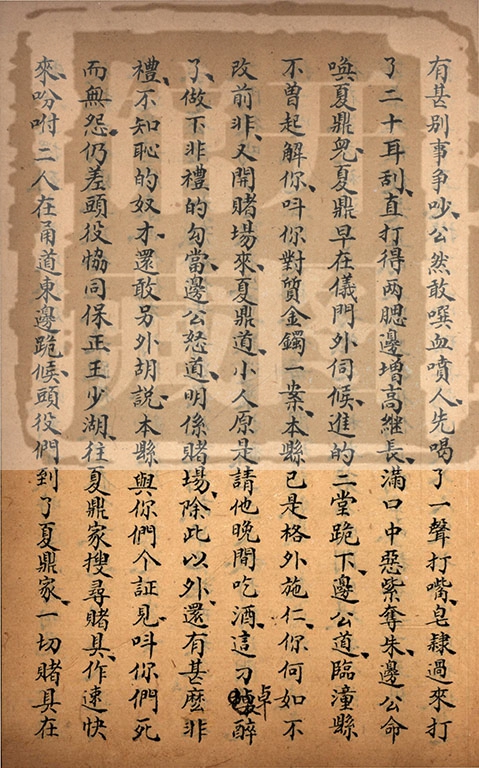 有甚别事争吵、公然敢噀血噴人、先喝了一聲打嘴、皂隸過來打
了二十耳刮、直打得兩腮邊增高継長、滿口中惡紫奪朱、邊公命
喚夏鼎兇、夏鼎早在儀門外伺候、進的二堂跪下、邊公道、臨潼縣
不曾起解你、呌你對質金鐲一案、本縣已是格外施仁、你何如不
改前非、又開賭場來、夏鼎道、小人原是請他晚間吃酒、這刁卓醉
了、做下非禮的勾當、邊公怒道、明係賭場、除此以外、還有甚麽非
禮、不知恥的奴才、還敢另外胡說、本縣與你們个証見、呌你們死
而無怨、仍差頭役恊同保正王少湖、往夏鼎家搜尋賭具、作速快
來、吩咐二人在甬道東邊跪候、頭役們到了夏鼎家、一切賭具在